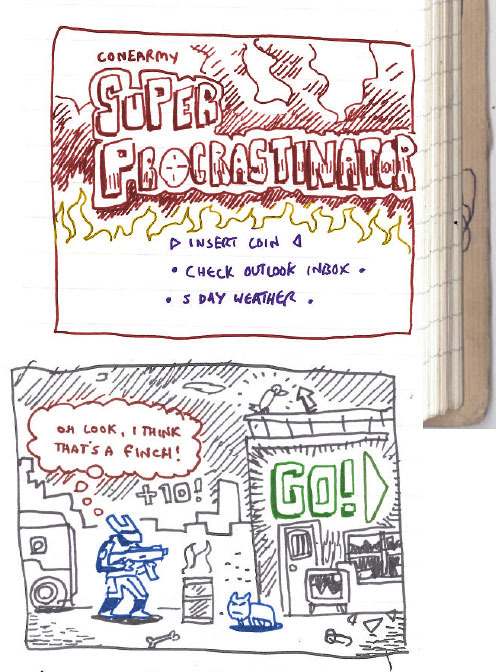 CONEARMY
SUPER
PROCRASTINATOR
▷ INSERT COIN ◁
• CHECK OUTLOOK INBOX •
• 5 DAY WEATHER •
OH LOOK, I THINK
THAT'S A FINCH!
+10!
GO!